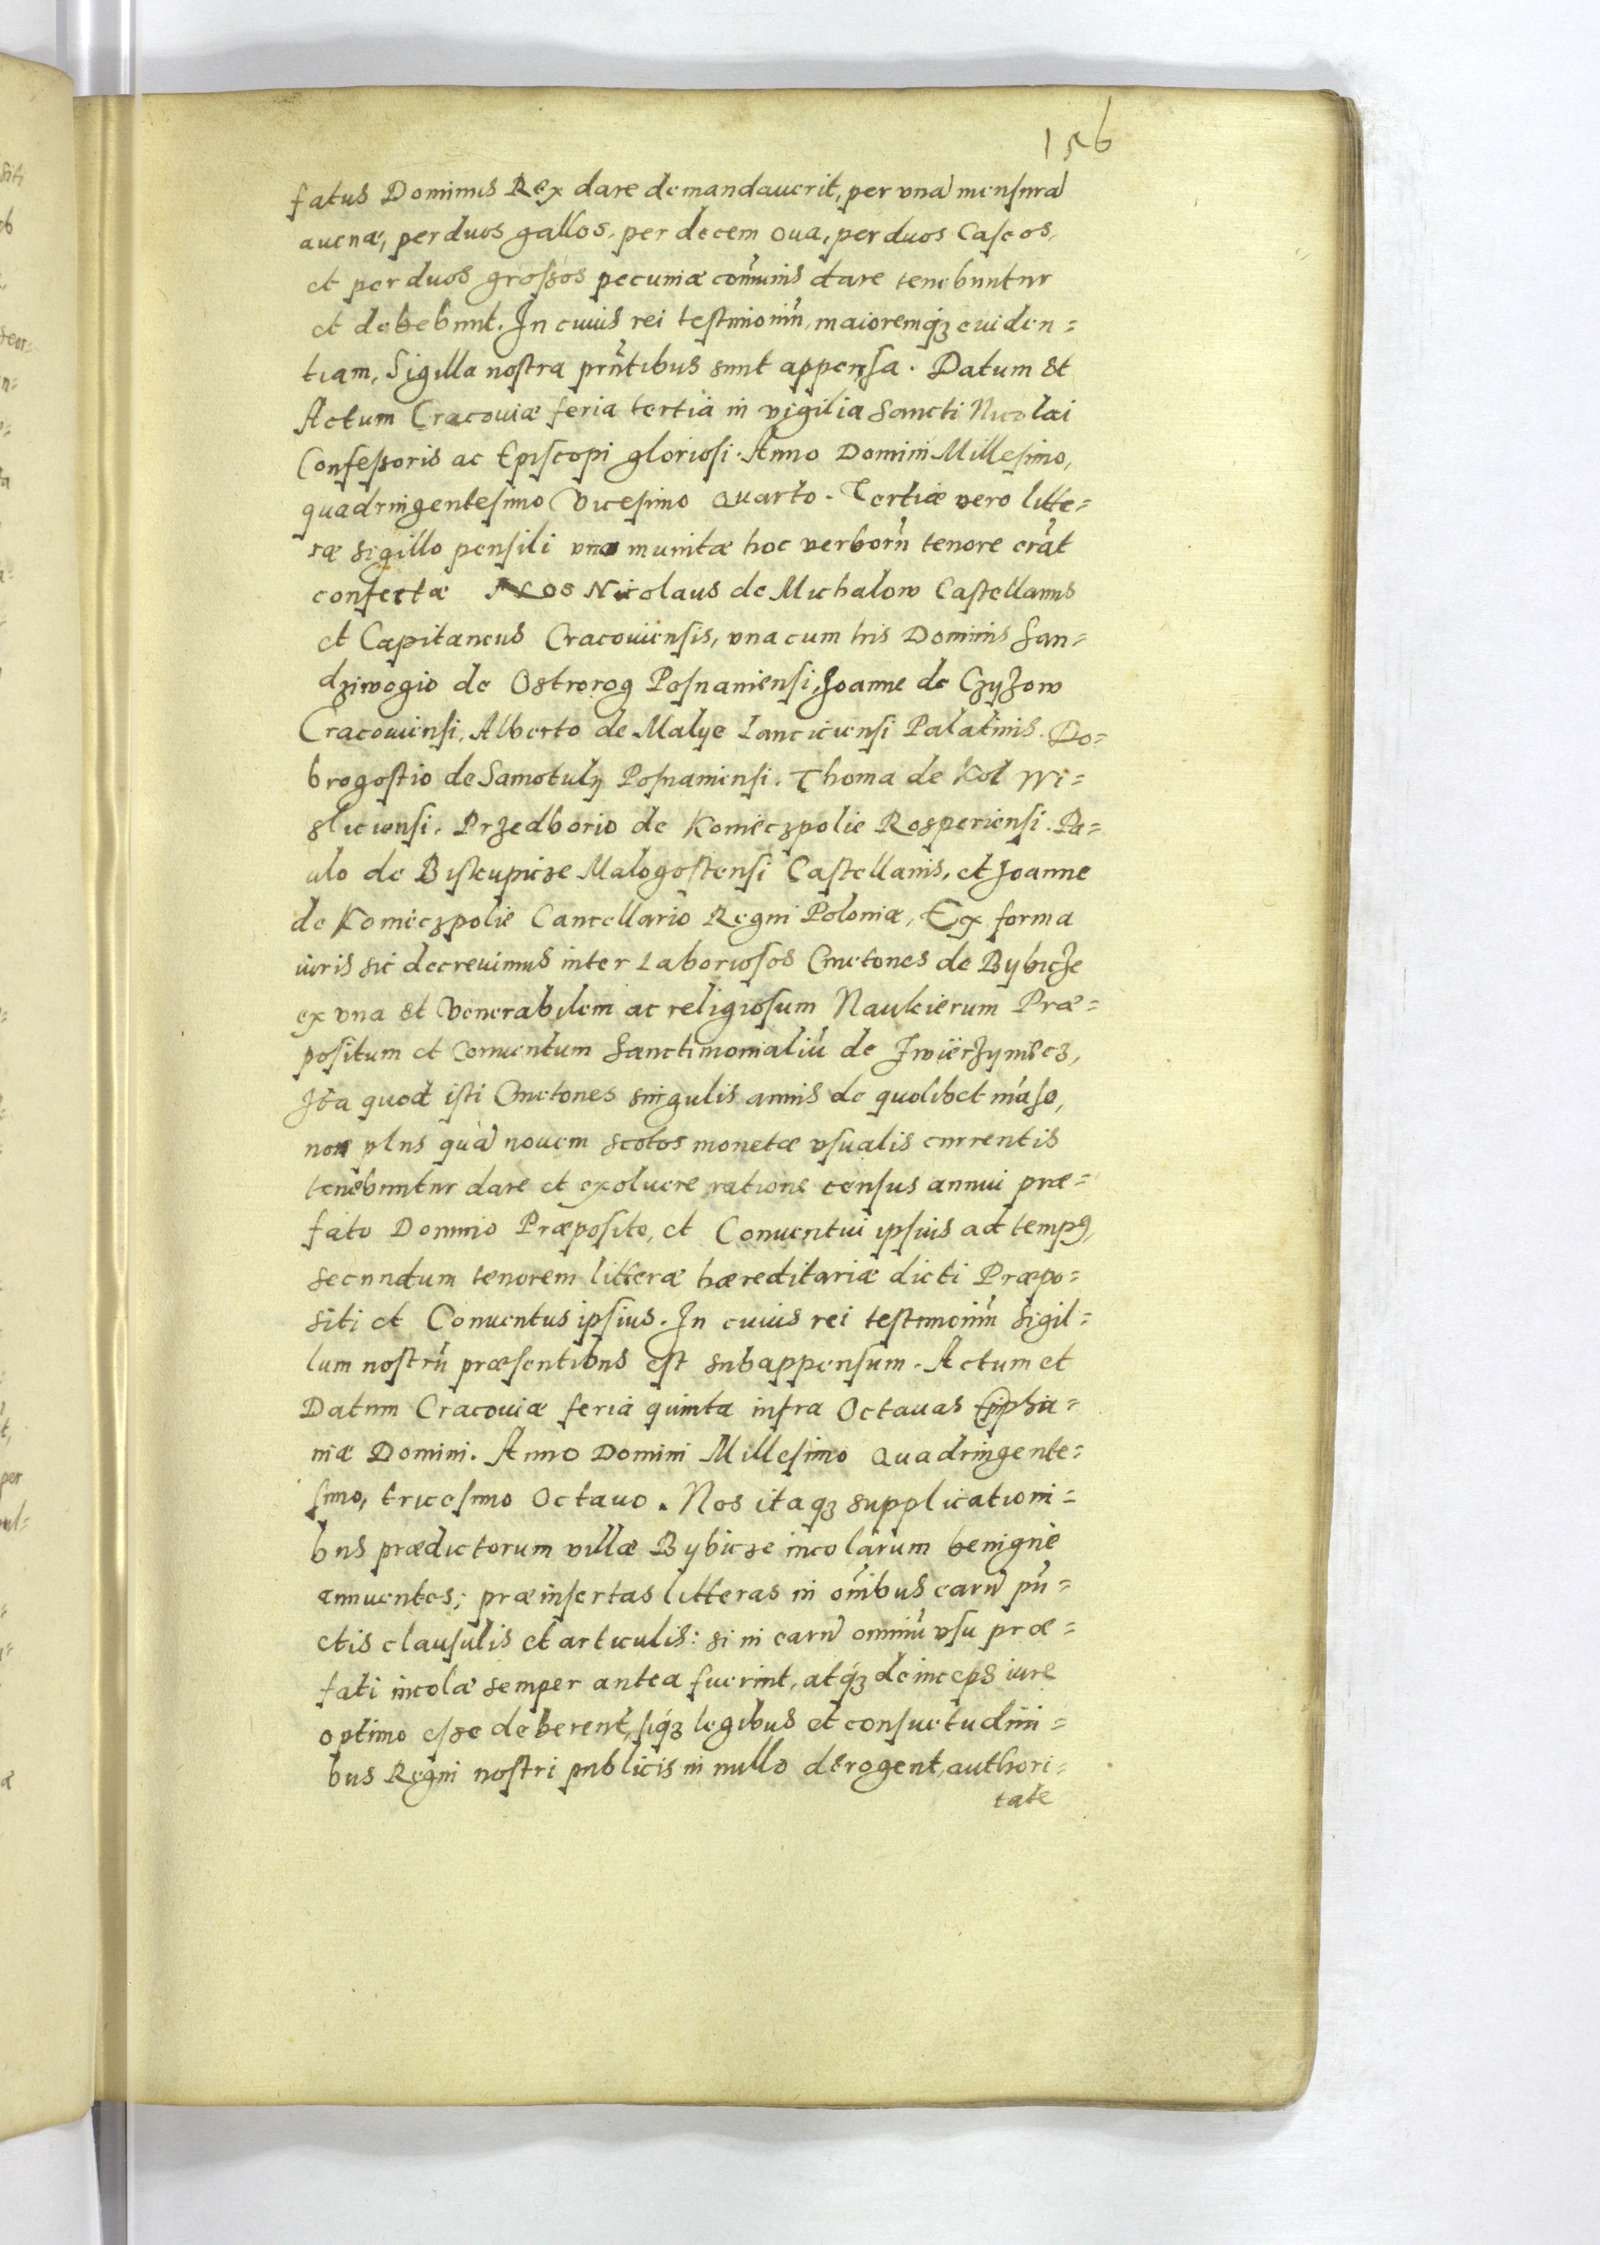 156
fatus Dominus Rex dare demandauerit, per vnã mensurã
auenæ, per duos gallos, per decem oua, per duos Caseos,
et per duos grossos pecuniæ com̃unis dare tenebuntur
et debebunt. In cuius rei testimoniũ, maioremq₃ euiden=
tiam, Sigilla nostra prñtibus sunt appensa. Datum et
Actum Cracouiæ feria tertia in vigilia Sancti Nicolai
Confessoris ac Episcopi gloriosi. Anno Domini Millesimo,
quadringentesimo Vicesimo Quarto. Tertiæ vero litte=
ræ sigillo pensili vno munitæ hoc verborũ tenore erãt
confectæ Nos Nicolaus de Michalow Castellanus
et Capitaneus Cracouiensis, vna cum his Dominis San=
dziwogio de Ostrorog Posnaniensi, Joanne de Czyzow
Cracouiensi, Alberto de Malye Lanciciensi Palatinis. Do=
brogostio de Samotuly Posnaniensi. Thoma de Kol Wi=
sliciensi, Przedborio de Konieczpolie Rosperiensi. Pa=
ulo de Biskupicze Malogostensi Castellanis, et Joanne
de Konieczpolie Cancellario Regni Poloniæ, Ex forma
iuris sic decreuimus inter Laboriosos Cmetones de Bybicze
ex vna et Venerabilem ac religiosum Naukierum Præ=
positum et Conuentum Sanctimonialiũ de Zwierzyniecz,
Ita quod isti Cmetones singulis annis de quolibet mãso,
non plus quã nouem scotos monetæ vsualis currentis
tenebuntur dare et exoluere ratione census annui præ=
fato Domino Præposito, et Conuentui ipsius ad tempꝰ,
secundum tenorem litteræ hæreditariæ dicti Præpo=
siti et Conuentus ipsius. In cuius rei testimoniũ Sigil=
lum nostrũ præsentibus est subappensum. Actum et
Datum Cracouiæ feria quinta infra Octauas Epipha=
niæ Domini. Anno Domini Millesimo Quadringente=
simo, tricesimo Octauo. Nos itaq₃ supplicationi=
bus prædictorum villæ Bybicze incolarum benigne
annuentes; præinsertas litteras in om̃ibus earũ pũ=
ctis clausulis et articulis: si in earũ omniũ vsu præ=
fati incolæ semper antea fuerint, atq₃ deinceps iure
optimo esse deberent, siq₃ legibus et consuetudini=
bus Regni nostri publicis in nullo derogent, authori=
tate